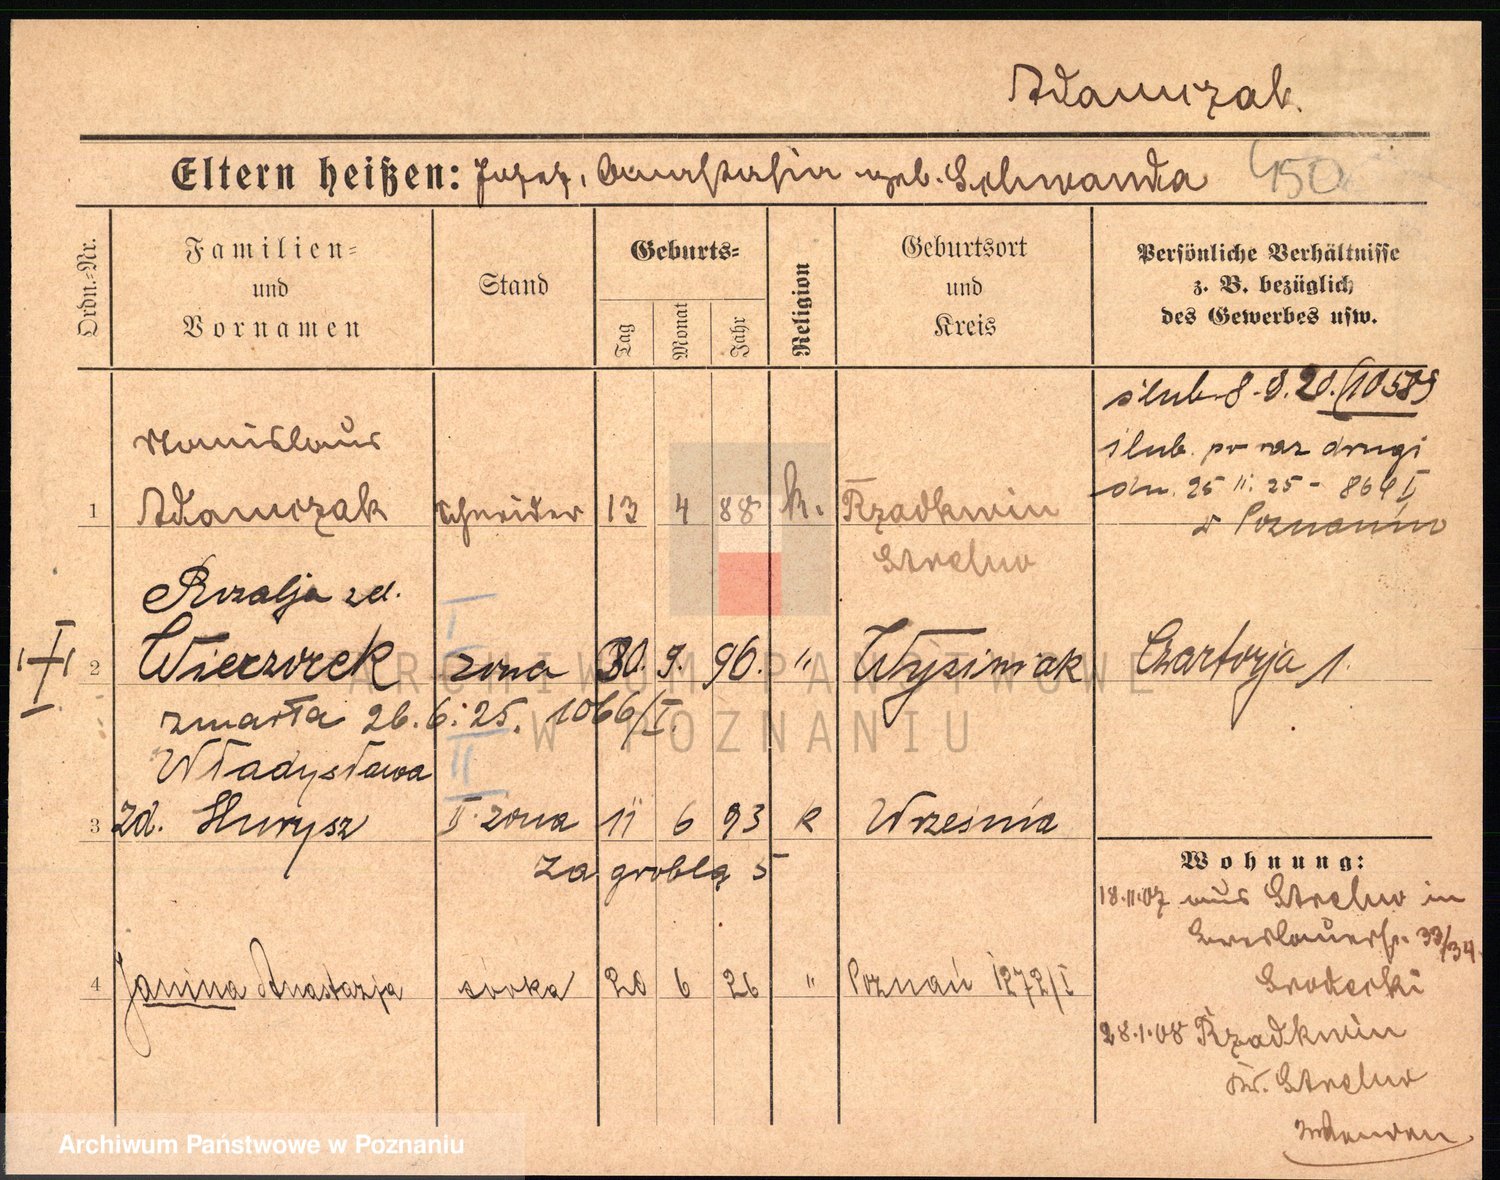 Adamczak.
Eltern heißen: Josef, Anastasia geb. Schwanda
450
Ordn.-Nr.
Familien- und Vornamen
Stand
Geburts-
Tag
Monat
Jahr
Religion
Geburtsort und Kreis
Persönliche Verhältnisse
z. B. bezüglich
des Gewerbes usw.
ślub 8. 9. 20.
ślub po raz drugi
dn. 25 11. 25 - 864 I
w Poznaniu
Stanislaus
1 Adamczak Schneider 13 4 88 k. Rzadkwin
Strelno
Rozalja zd.
2 Wieczorek żona 30. 9. 96. " Czartorja 1.
zmarła 26. 6. 25. 1066/I.
Władysława
3 zd. II żona 11 6 93 k Września
Za groblą 5
4 Janina Anastazja córka 20 6 26 " Poznań 1272/I
Wohnung:
18.11.07 aus Strelno in
Breslauerstr. 33/34.
Grodecki
28.1.08 Rzadkwin
Kr. Strelno
ARCHIWUM PAŃSTWOWE
W POZNANIU
Archiwum Państwowe w Poznaniu